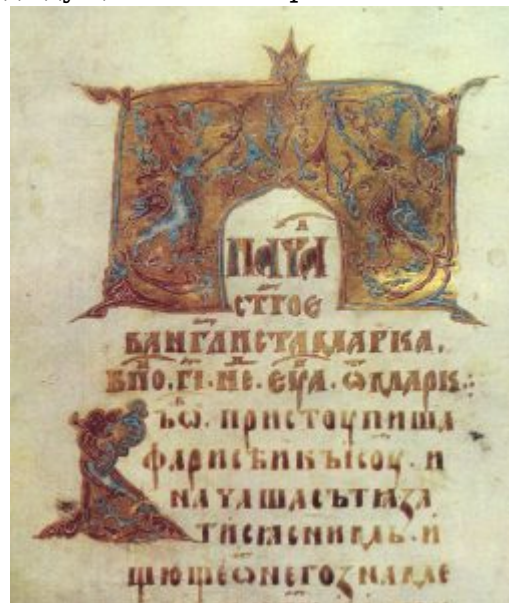 НАЧА
СТГОЄ
ВАНГЛИСТАМАРКА.
В҃ПО.Г҃І.НЕ.ЄѴ҃А.ѾМАРК:·
ВЪѠ.ПРИСТОУПИША
ФАРИСѢИКЪІСОУ.И
НАЧАША СЪТѦЗА
ТИСѦСНИМЬ.И
ЩЮЩЕѠНЕГОЗНАМЕ